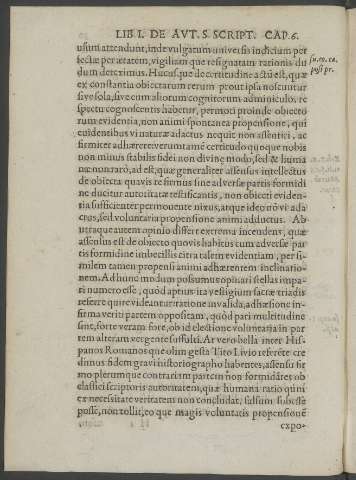 LIB I. DE AVT. S. SCRIPT. CAP. 6.
usum attendunt, inde vulgatum universis indicium per
fectæ per ætatem, vigiliam que resignatam rationis du
dum deteximus. Hucusque de certitudine actũ est, quæ
ex constantia obiectarum rerum prout ipsa noscuntur
sive sola, sive cum aliorum cognitorum adminiculo, re
spectu cognoscentis habetur, permoti proinde obiecto
rum evidentia, non animi spontanea propensione, qui
evidentibus vi naturæ adactus nequit non assentiri, ac
firmiter adhærere verum tamẽ certitudo quoque nobis
non minus stabilis fidei non divinę modo, sed & huma
næ non raró, ad est, quæ generaliter assensus intellectus
de obiecta quavis re firmus sine adversæ partis formidi
ne ducitur autoritatæ testificantis, non obiecti eviden-
tia sufficienter permovente nixus, atque ideo nõ vi ada
ctus, sed voluntaria propensione animi adductus. Ab
utraque autem opinio differt extrema incedens, quæ
assensus est de obiecto quovis habitus cum adversæ par
tis formidine imbecillis citra talem evidentiam, per si-
milem tamen propensi animi adhærentem inclinatio-
nem. Ad hunc modum possumus opinari stellas impa-
ri numero esse, quòd aptius ita vestigium sacræ triadis
referre queir videantur ratione invalida, adhæsione in-
firma veriti partem oppositam, quòd pari multitudine
sint, forte veram fore, ob id electione voluntaria in par
tem alteram vergente suffulti. At vero bella inter His-
panos Romanos que olim gesta Tito Livio referẽte cre
dimus fidem gravi historiographo habentes, assensu fir
mo plerumque contrariam partem non formidãtes ob
classici scriptoris autoritatem, quæ humana ratio quini
ex necessitate veritatem non concludat, falsum subesse
posse, non tollit, eo que magis voluntatis propensione
expo-